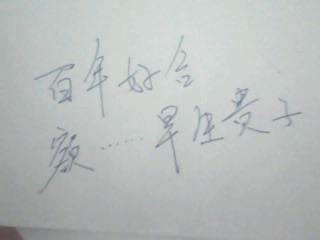 百年好合
额……早生贵子